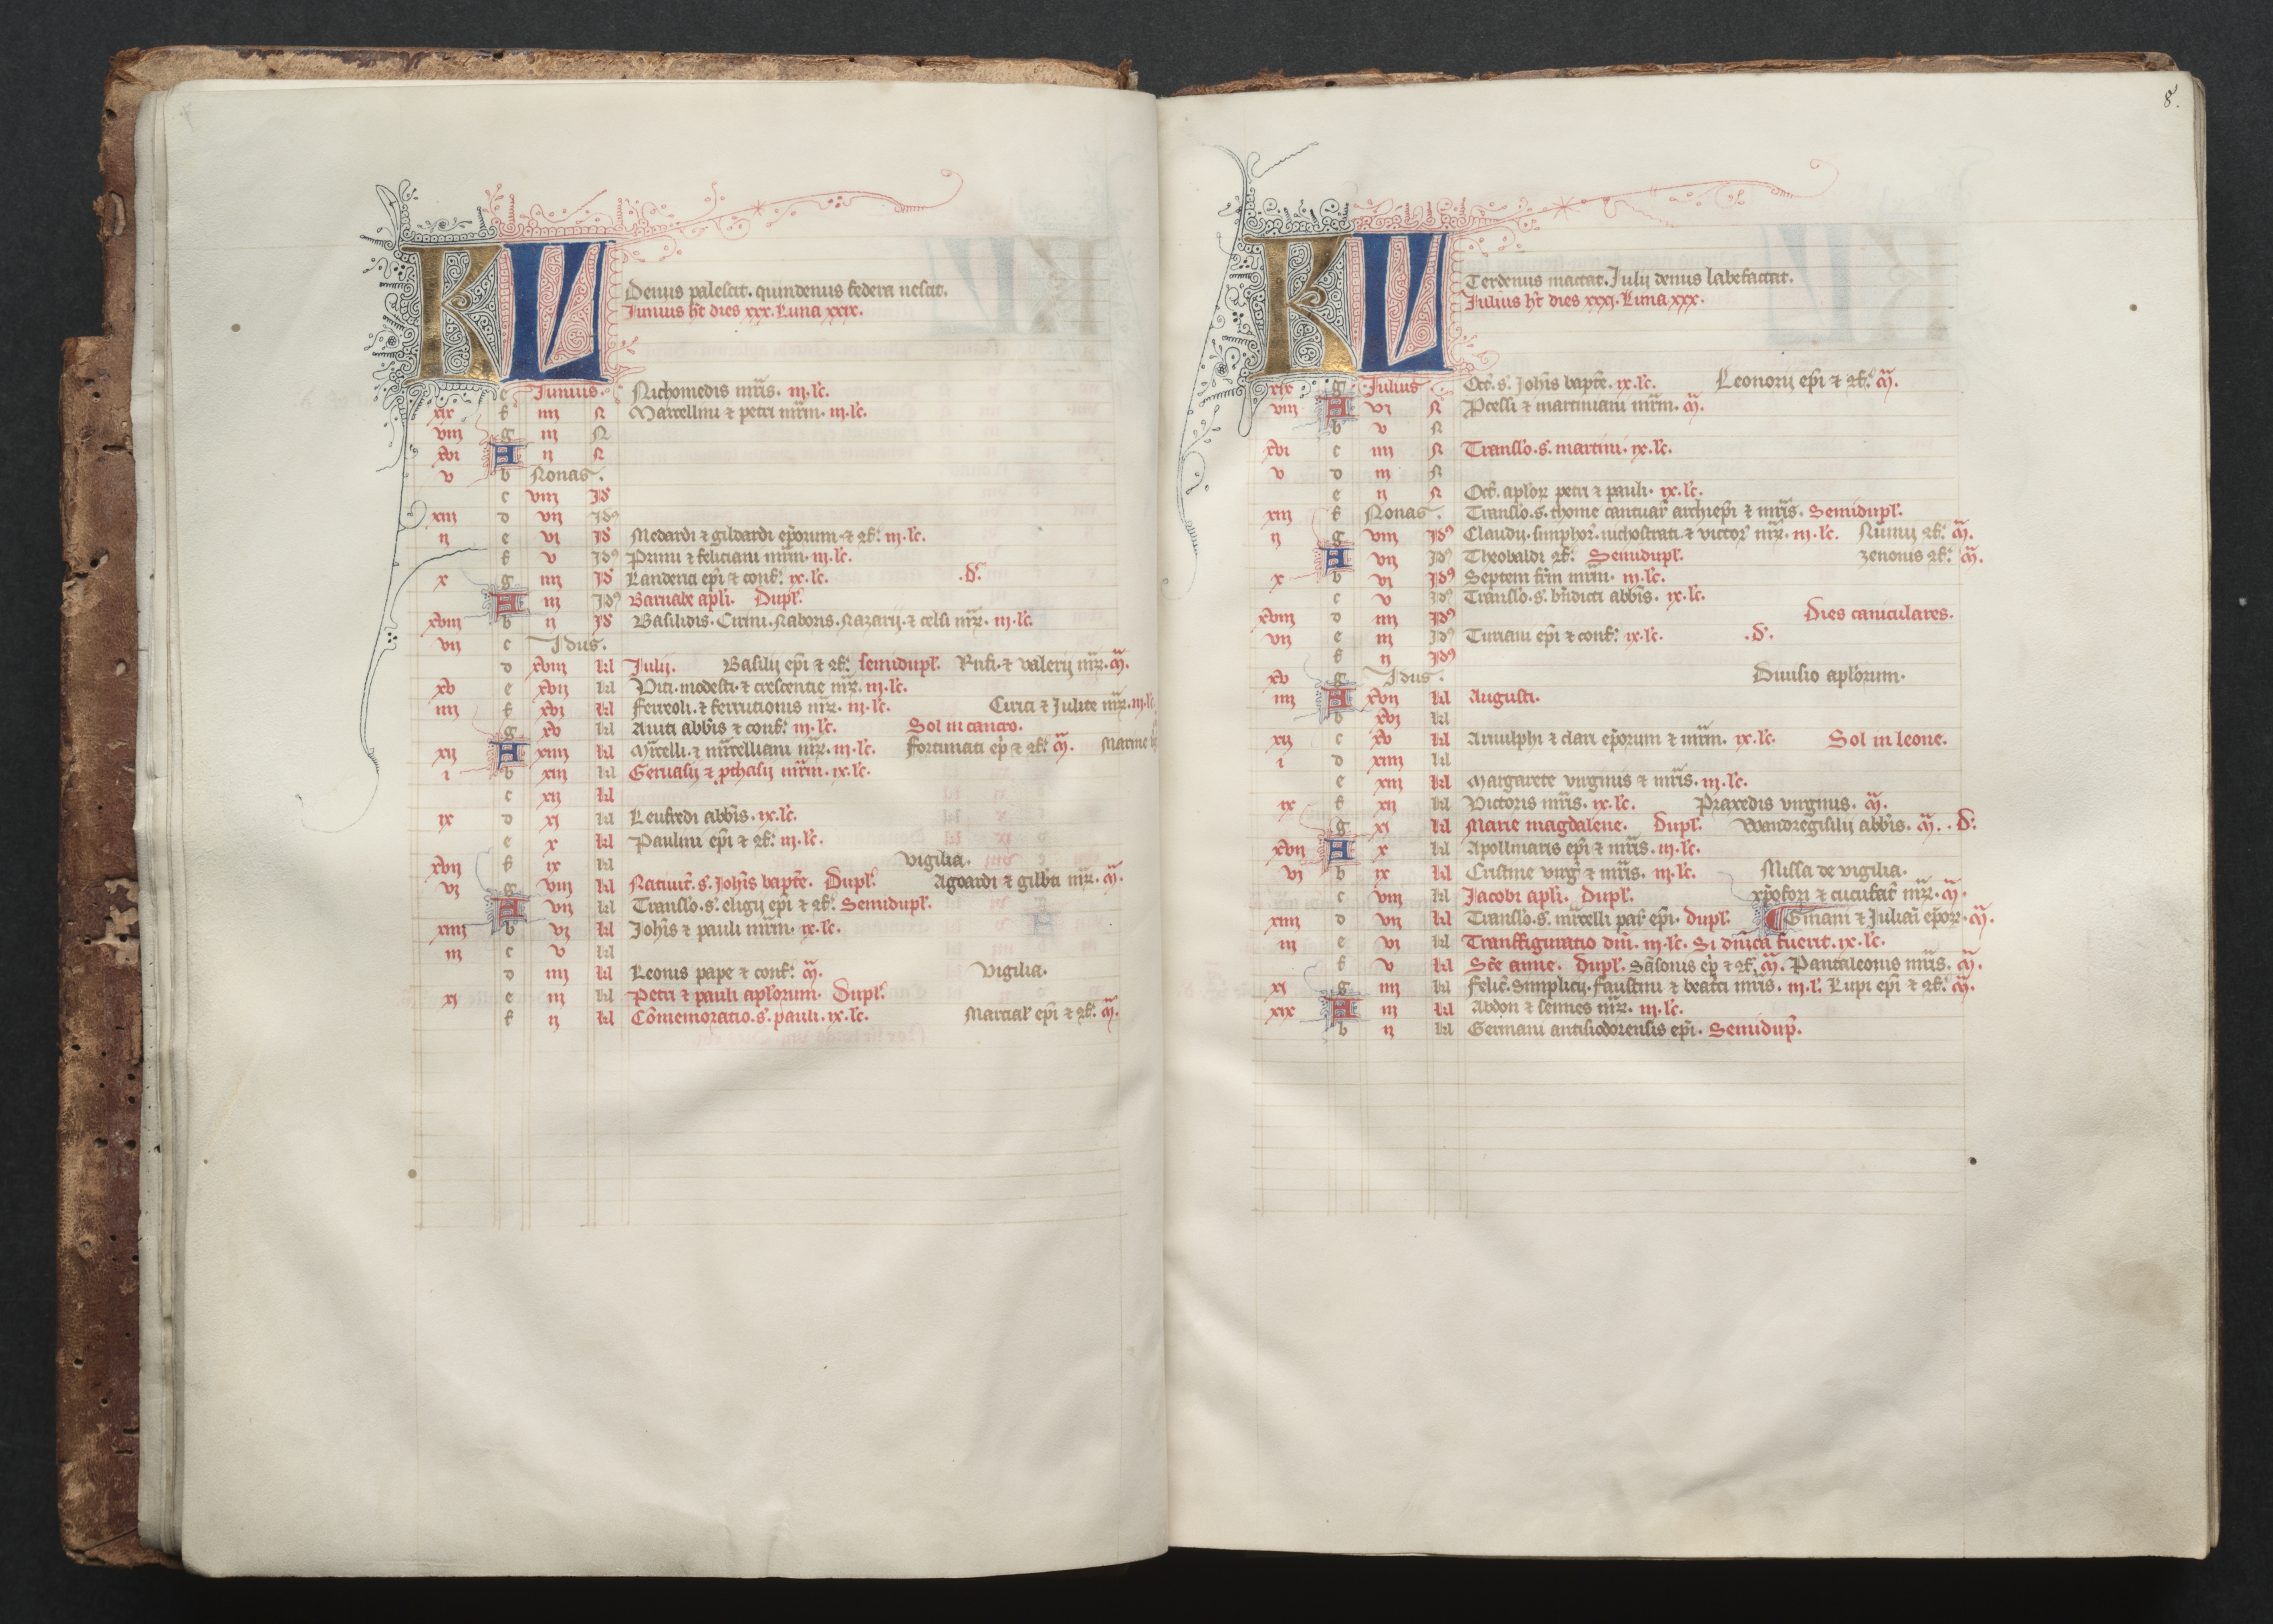 KL
Denus palescit. quindenus federa nescit.
Junius ht dies xxx. Luna xxix.
e Junius. Nichomedis mris. iij. lc.
xix f iiij N Marcellini et petri mrm. iij. lc.
viij g iij N
xvi A ij N
v b Nonas.
c viij Id
xiij d vij Idꝰ
ij e vi Id Medardi ⁊ gildardi eporum ⁊ ꝯf. iij. lc.
f v Idꝰ Primi ⁊ feliciani mrm. iij. lc.
x g iiij Id Landerici epi ⁊ conf. ix. lc. .d.
A iij Idꝰ Barnabe apli. Dupl.
xviij b ij Id Basilidis. Cirini. Naboris. Nazarij. ⁊ celsi mrꝝ. iij. lc.
vij c Idus.
d xviij kl Julij. Basilij epi ⁊ ꝯf. semidupl. Rufi. ⁊ valerij mrꝝ. m.
xv e xvij kl Viti. modesti. ⁊ crescentie mrꝝ. iij. lc.
iiij f xvi kl Ferreoli. ⁊ ferrutionis mrꝝ. iij. lc. Cirici ⁊ Julite mrꝝ. iij. lc.
g xv kl Aviti abbis ⁊ conf. iij. lc. Sol in cancro.
xij A xiiij kl Mrcelli. ⁊ mrcelliani mrꝝ. iij. lc. Fortunati ep ⁊ ꝯf. m. Marine
i b xiij kl Gervasij ⁊ pthasij mrm. ix. lc.
c xij kl
ix d xi kl Leufredi abbis. ix. lc.
e x kl Paulini epi ⁊ ꝯf. iij. lc.
xvij f ix kl Vigilia.
vi g viij kl Nativit. s. Johis bapte. Dupl. Agoardi ⁊ gilbti mrꝝ. m.
A vij kl Translo. s. eligij epi ⁊ ꝯf. Semidupl.
xiiij b vi kl Johis ⁊ pauli mrm. ix. lc.
iij c v kl
d iiij kl Leonis pape ⁊ conf. m. Vigilia.
xi e iij kl Petri ⁊ pauli aplorum. Dupl.
f ij kl Comemoratio. s. pauli. ix. lc. Martial epi ⁊ ꝯf. m.
8.
KL
Terdenus mactat. Julij denus labefactat.
Julius ht dies xxxi. Luna xxx.
xix g Julius Oct. s. Johis bapte. ix. lc. Leonorij epi ⁊ ꝯf. m.
viij A vi N Pcessi ⁊ martiniani mrm. m.
b v N
xvi c iiij N Translo. s. martini. ix. lc.
v d iij N
e ij N Oct. aploꝝ petri ⁊ pauli. ix. lc.
xiij f Nonas. Translo. s. thome cantuar archiepi ⁊ mris. Semidupl.
ij g viij Idꝰ Claudij. simphor. nichostrati. ⁊ victor mrꝝ. iij. lc. ꝯf. m.
A vij Idꝰ Theobaldi ꝯf. Semidupl. zenonis ꝯf. m.
x b vi Idꝰ Septem frm mrm. iij. lc.
c v Idꝰ Translo. s. bndicti abbis. ix. lc.
xviij d iiij Idꝰ Dies caniculares.
vij e iij Idꝰ Turiani epi ⁊ conf. ix. lc. .d.
f ij Idꝰ
xv g Idus. Divisio aplorum.
iiij A xvij kl Augusti.
b xvi kl
xij c xv kl Arnulphi ⁊ clari eporum ⁊ mrm. ix. lc. Sol in leone.
i d xiiij kl
e xiij kl Margarete virginis ⁊ mris. iij. lc.
ix f xij kl Victoris mris. ix. lc. Praxedis virginis. m.
g xi kl Marie magdalene. Dupl. Wandregisilij abbis. m. .d.
xvij A x kl Apollinaris epi ⁊ mris. iij. lc.
vi b ix kl Cristine virg ⁊ mris. iij. lc. Missa de vigilia.
c viij kl Jacobi apli. Dupl. xpofori ⁊ cucufat mrꝝ. m.
xiiij d vij kl Translo. s. mrcelli par epi. dupl. Gmani ⁊ Juliani epoꝝ. m.
iij e vi kl Transfiguratio dni. iij. lc. Si dnica fuerit. ix. lc.
f v kl Sce anne. dupl. Sasonis ep ⁊ ꝯf. m. Pantaleonis mris. m.
xi g iiij kl Felic. Simplicij. faustini ⁊ beatrici mris. iij. l. Lupi epi ⁊ ꝯf. m.
xix A iij kl Abdon ⁊ sennes mrꝝ. iij. lc.
b ij kl Germani antisiodorensis epi. Semidup.